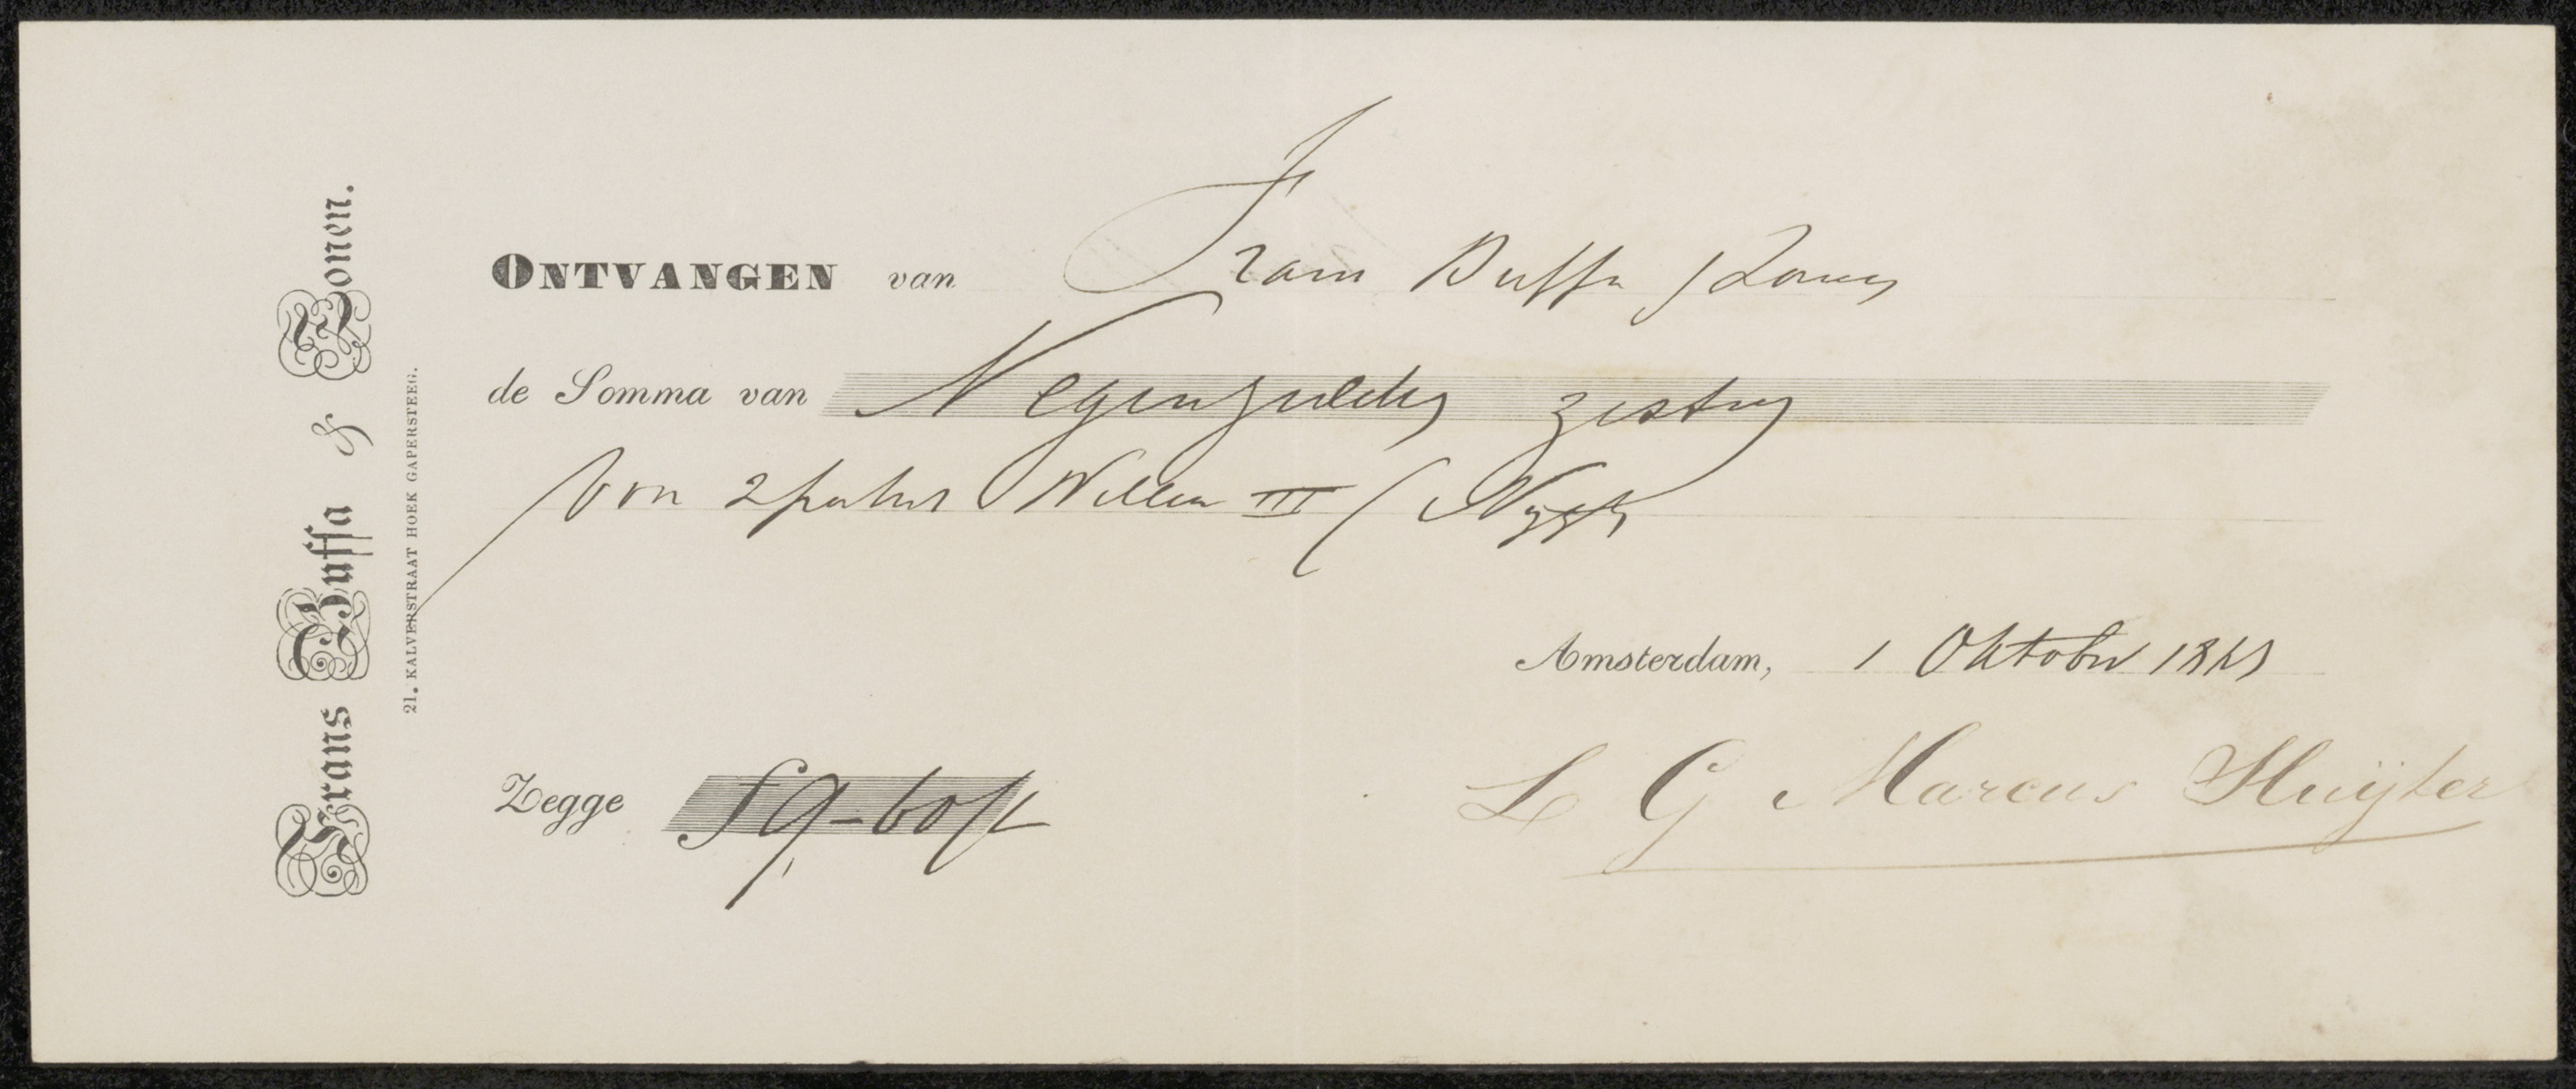 Frans Buffa & Zonen.
21, KALVERSTRAAT HOEK GAPERSTEEG.
ONTVANGEN van Frans Buffa & Zonen
de Somma van Negengulden zestig
Von 2 Willem III
Amsterdam, 1 Oktober
Zegge f 9-60
L G Marcus Huijter